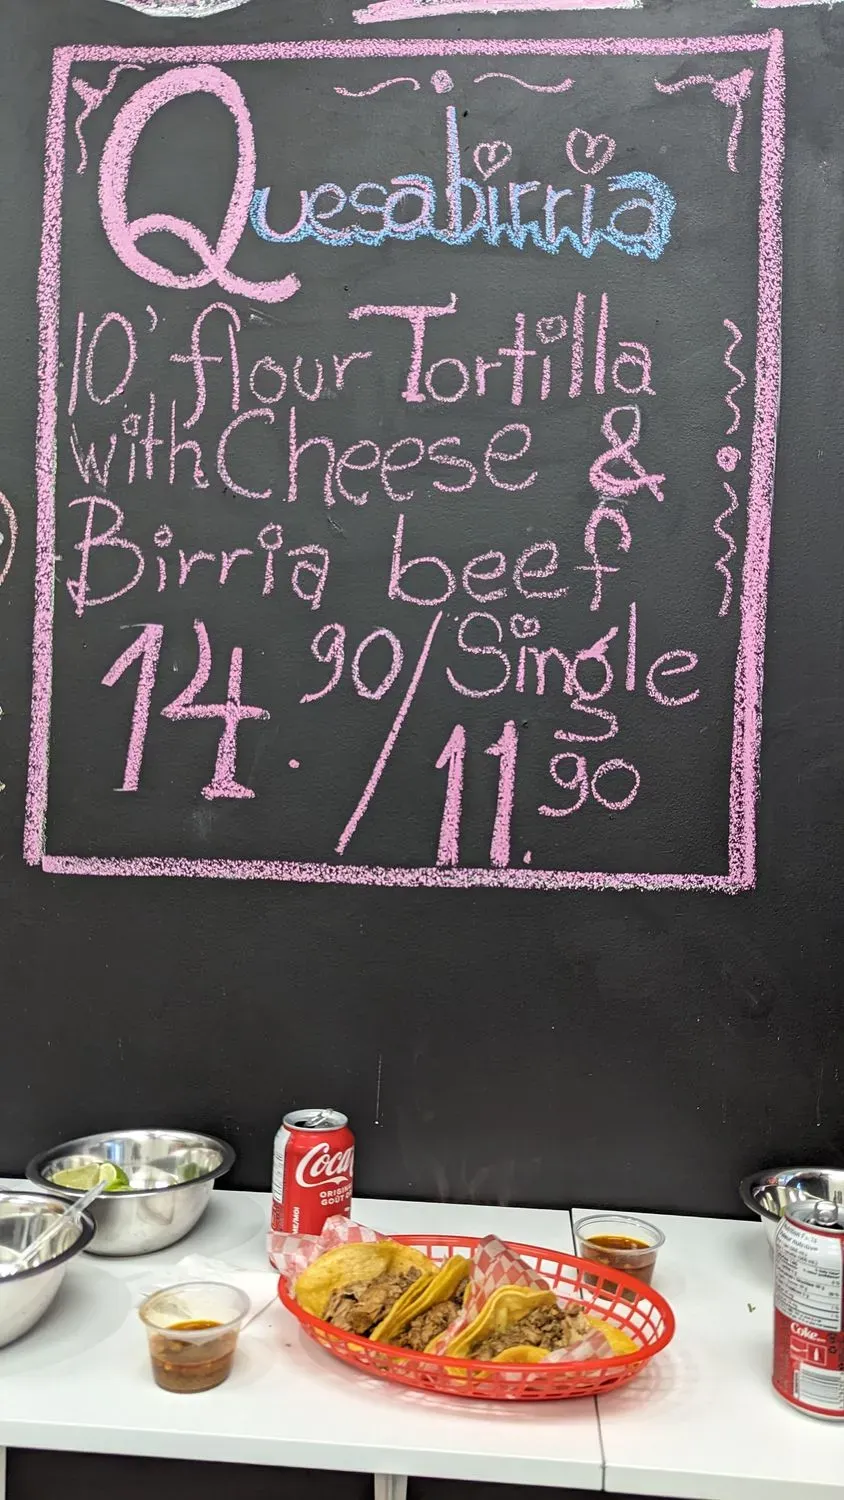 Quesabirria
10' flour Tortilla
with Cheese &
Birria beef
14.90/Single
11.90
Coca
ORIGIN
GOÛT
Nutrition Facts
Coke